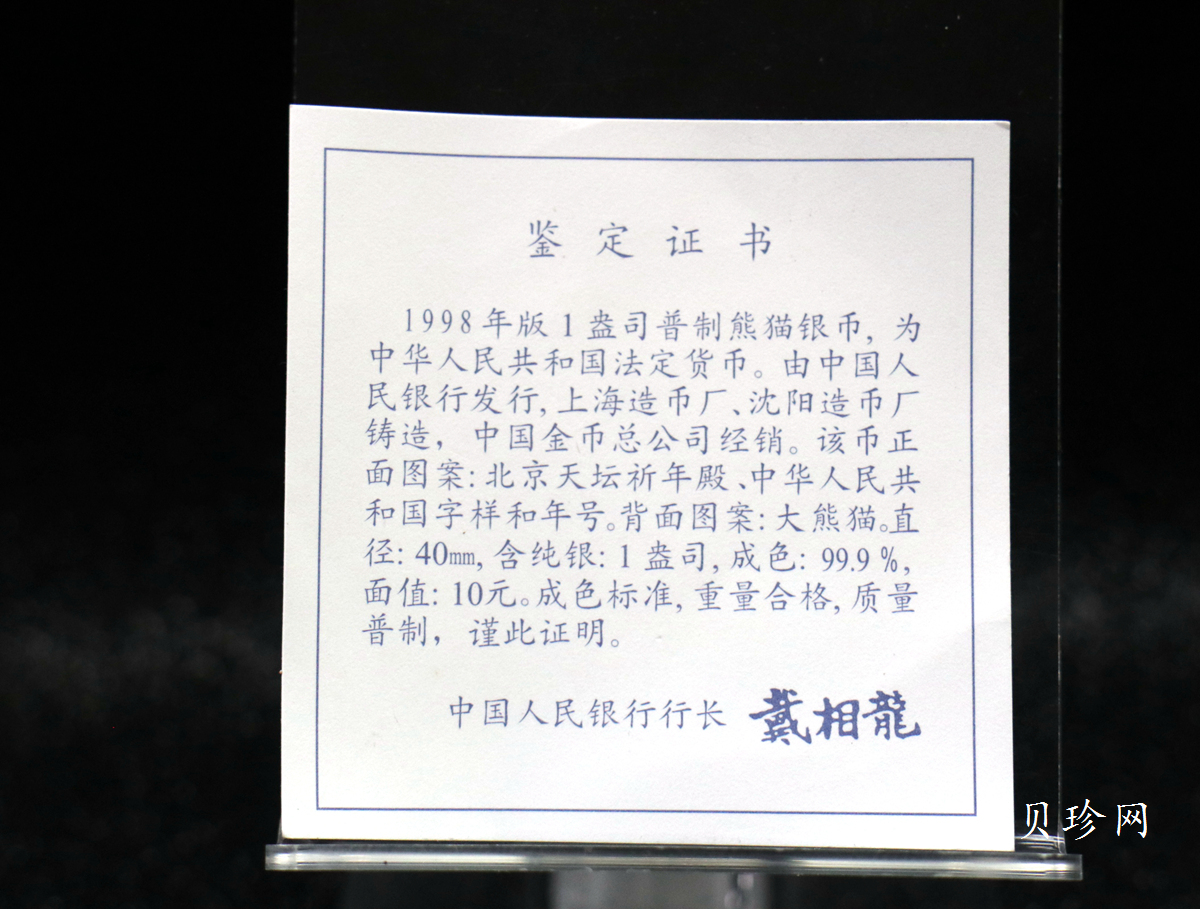 鉴定证书
1998年版1盎司普制熊猫银币,为
中华人民共和国法定货币。由中国人
民银行发行,上海造币厂、沈阳造币厂
铸造,中国金币总公司经销。该币正
面图案:北京天坛祈年殿、中华人民共
和国字样和年号。背面图案:大熊猫。直
径:40mm,含纯银:1盎司,成色:99.9%,
面值:10元。成色标准,重量合格,质量
普制,谨此证明。
中国人民银行行长 戴相龍
贝珍网